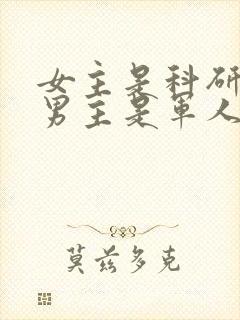 女主是科研
男主是军人
莫兹多克